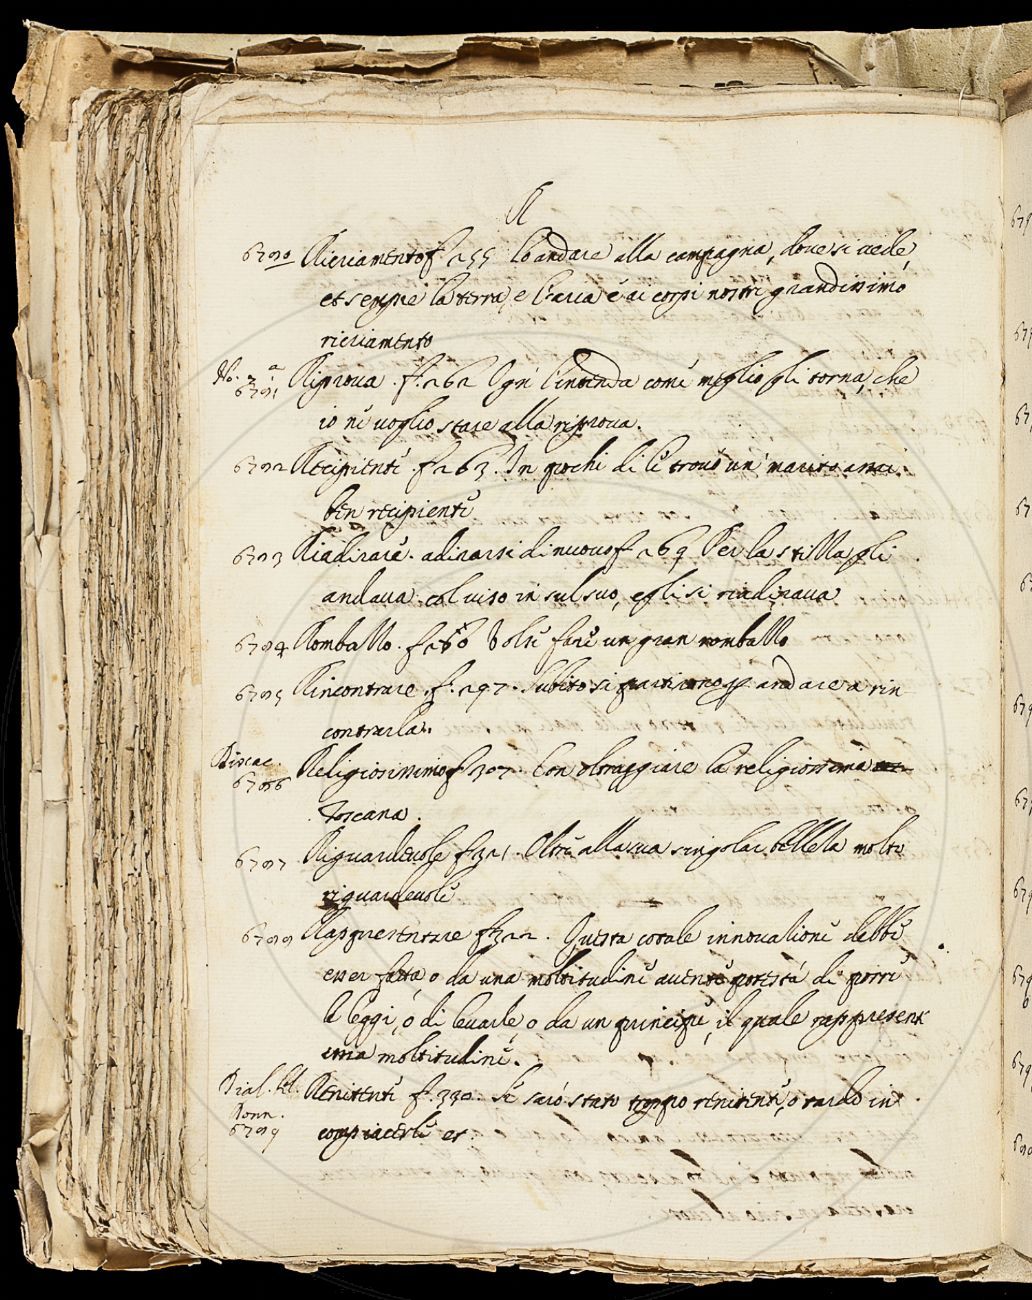 R
6790 Ricriamento f. 255 Lo andare alla campagna, dove si vede,
et sempre la terra, e l'aria è ai corpi nostri grandissimo
ricriamento
No. 2.a
6791 Riprova. f. 262 Ogn' l'intenda come meglio gli torna, che
io ne voglio stare alla riprova.
6792 Recipiente. f. 263. In pochi dì le trovò un marito assai
ben recipiente
6793 Riadirare. adirarsi di nuovo f. 269 Per la stilla gli
andava col viso in sul suo, egli si riadirava
6794 Romballo. f. 280 Volse fare un gran romballo
6795 Rincontrare. f. 297. Subito si partirono per andare a rin
contrarla.
6796 Religiosissimo f. 307. Con oltraggiare la religiosissima
Toscana.
6797 Riguardevole f. 321. Oltre alla sua singolar bellezza molto
riguardevole
6798 Rappresentare f. 322. Questa cotale innovatione debbe
esser fatta o da una moltitudine avente potestà di porre
le leggi, ò di levarle, o da un principe, il quale rappresent
una moltitudine.
Dial. bel.
Donn.
6799 Renitente f. 330. Se sarò stato troppo renitente, o tardo in
compiacerle et